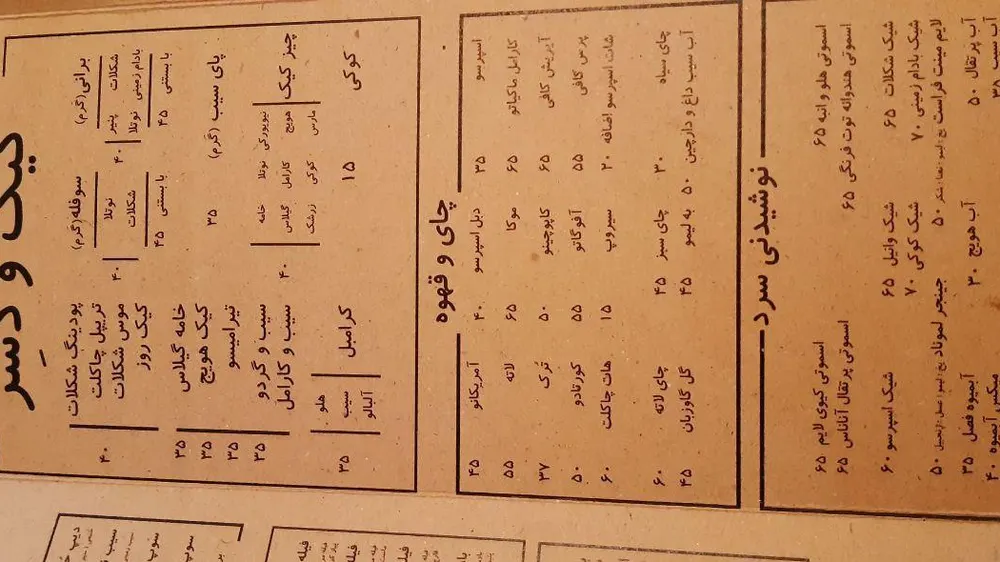 کیک و دسر
براونی (گرم)
شکلات
پنیر
۴۰
بادام زمینی
نوتلا
با بستنی ۴۵
پای سیب (گرم) ۳۵
چیز کیک
نیویورکی نوتلا خامه
هویج کارامل گیلاس
مارس کوکی زرشک
۴۰
کوکی ۱۵
سوفله (گرم)
نوتلا
شکلات
۴۰
با بستنی ۴۵
پودینگ شکلات
تریپل چاکلت
موس شکلات
کیک روز
۴۰
خامه گیلاس ۳۵
کیک هویج ۳۵
تیرامیسو ۳۵
سیب و گردو
سیب و کارامل
۳۵
کرامبل
هلو
سیب
آلبالو
۳۵
چای و قهوه
اسپرسو ۳۵ دبل اسپرسو ۴۰ آمریکانو ۴۵
کارامل ماکیاتو ۶۵ موکا ۶۵ لاته ۵۵
آیریش کافی ۶۵ کاپوچینو ۵۰ تُرک ۳۷
پرس کافی ۵۵ آفوگاتو ۵۵ کورتادو ۵۰
شات اسپرسو اضافه ۲۰ سیروپ ۱۵ هات چاکلت ۶۰
چای سیاه ۳۰ چای سبز ۴۵ چای لاته ۶۰
آب سیب داغ و دارچین ۵۰ به لیمو ۴۵ گل گاوزبان ۴۵
نوشیدنی سرد
اسموتی هلو و انبه ۶۵ اسموتی کیوی آلایم ۶۵
اسموتی هندوانه توت فرنگی ۶۵ اسموتی پرتقال آناناس ۶۵
شیک شکلات ۶۵ شیک وانیل ۶۵ شیک اسپرسو ۶۰
شیک بادام زمینی ۷۰ شیک کوکی ۷۰
لایم مینت فراست یخ، لیمو، نعنا، شکر ۵۰ جینجر لموناد یخ، لیمو، عسل، زنجبیل ۵۰
آب پرتقال ۵۰ آب هویج ۳۰ آبمیوه فصل ۳۵
آب سیب ۳۸ میکس آبمیوه ۴۰